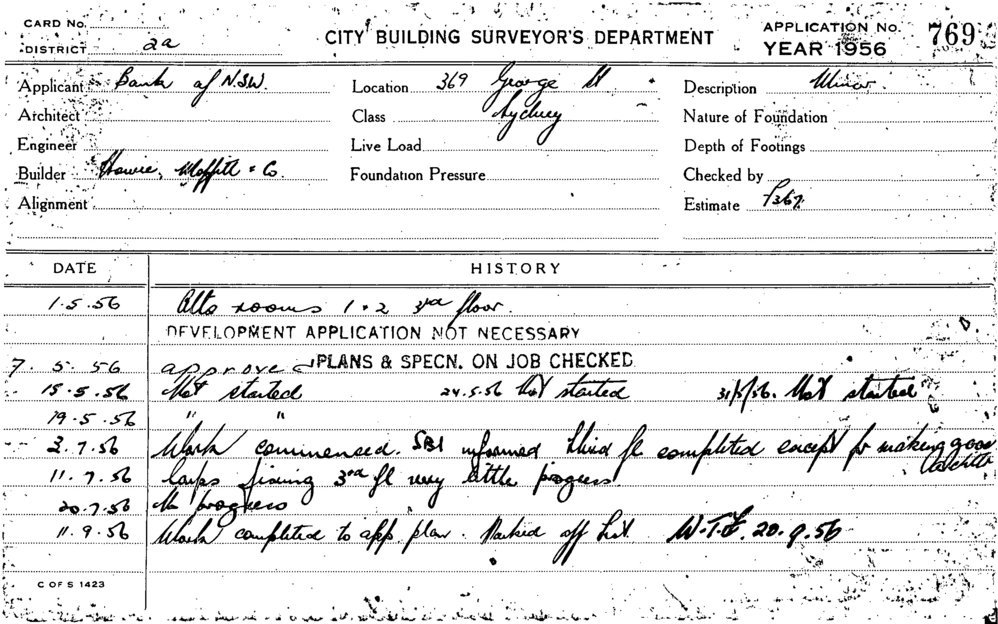 CARD No. CITY BUILDING SURVEYOR'S DEPARTMENT APPLICATION No. 769
DISTRICT 2a YEAR 1956
Applicant Bank of N.S.W. Location 369 George St Description Minor
Architect Class Sydney Nature of Foundation
Engineer Live Load Depth of Footings
Builder Howie, Moffitt & Co. Foundation Pressure Checked by
Alignment Estimate £367.
DATE HISTORY
1.5.56 Alts rooms 1 & 2 3rd floor.
DEVELOPMENT APPLICATION NOT NECESSARY
7. 5. 56 approved PLANS & SPECN. ON JOB CHECKED
15.5.56 Not started 24.5.56 Not started 31/5/56. Not started
19.5.56 " "
3.7.56 Work commenced. informed third fl completed except for making good
11.7.56 Carps fixing 3rd fl very little progress
20.7.56 No progress
11.9.56 Work completed to app. plan. Marked off list. W.T.F. 20.9.56
C OF S 1423